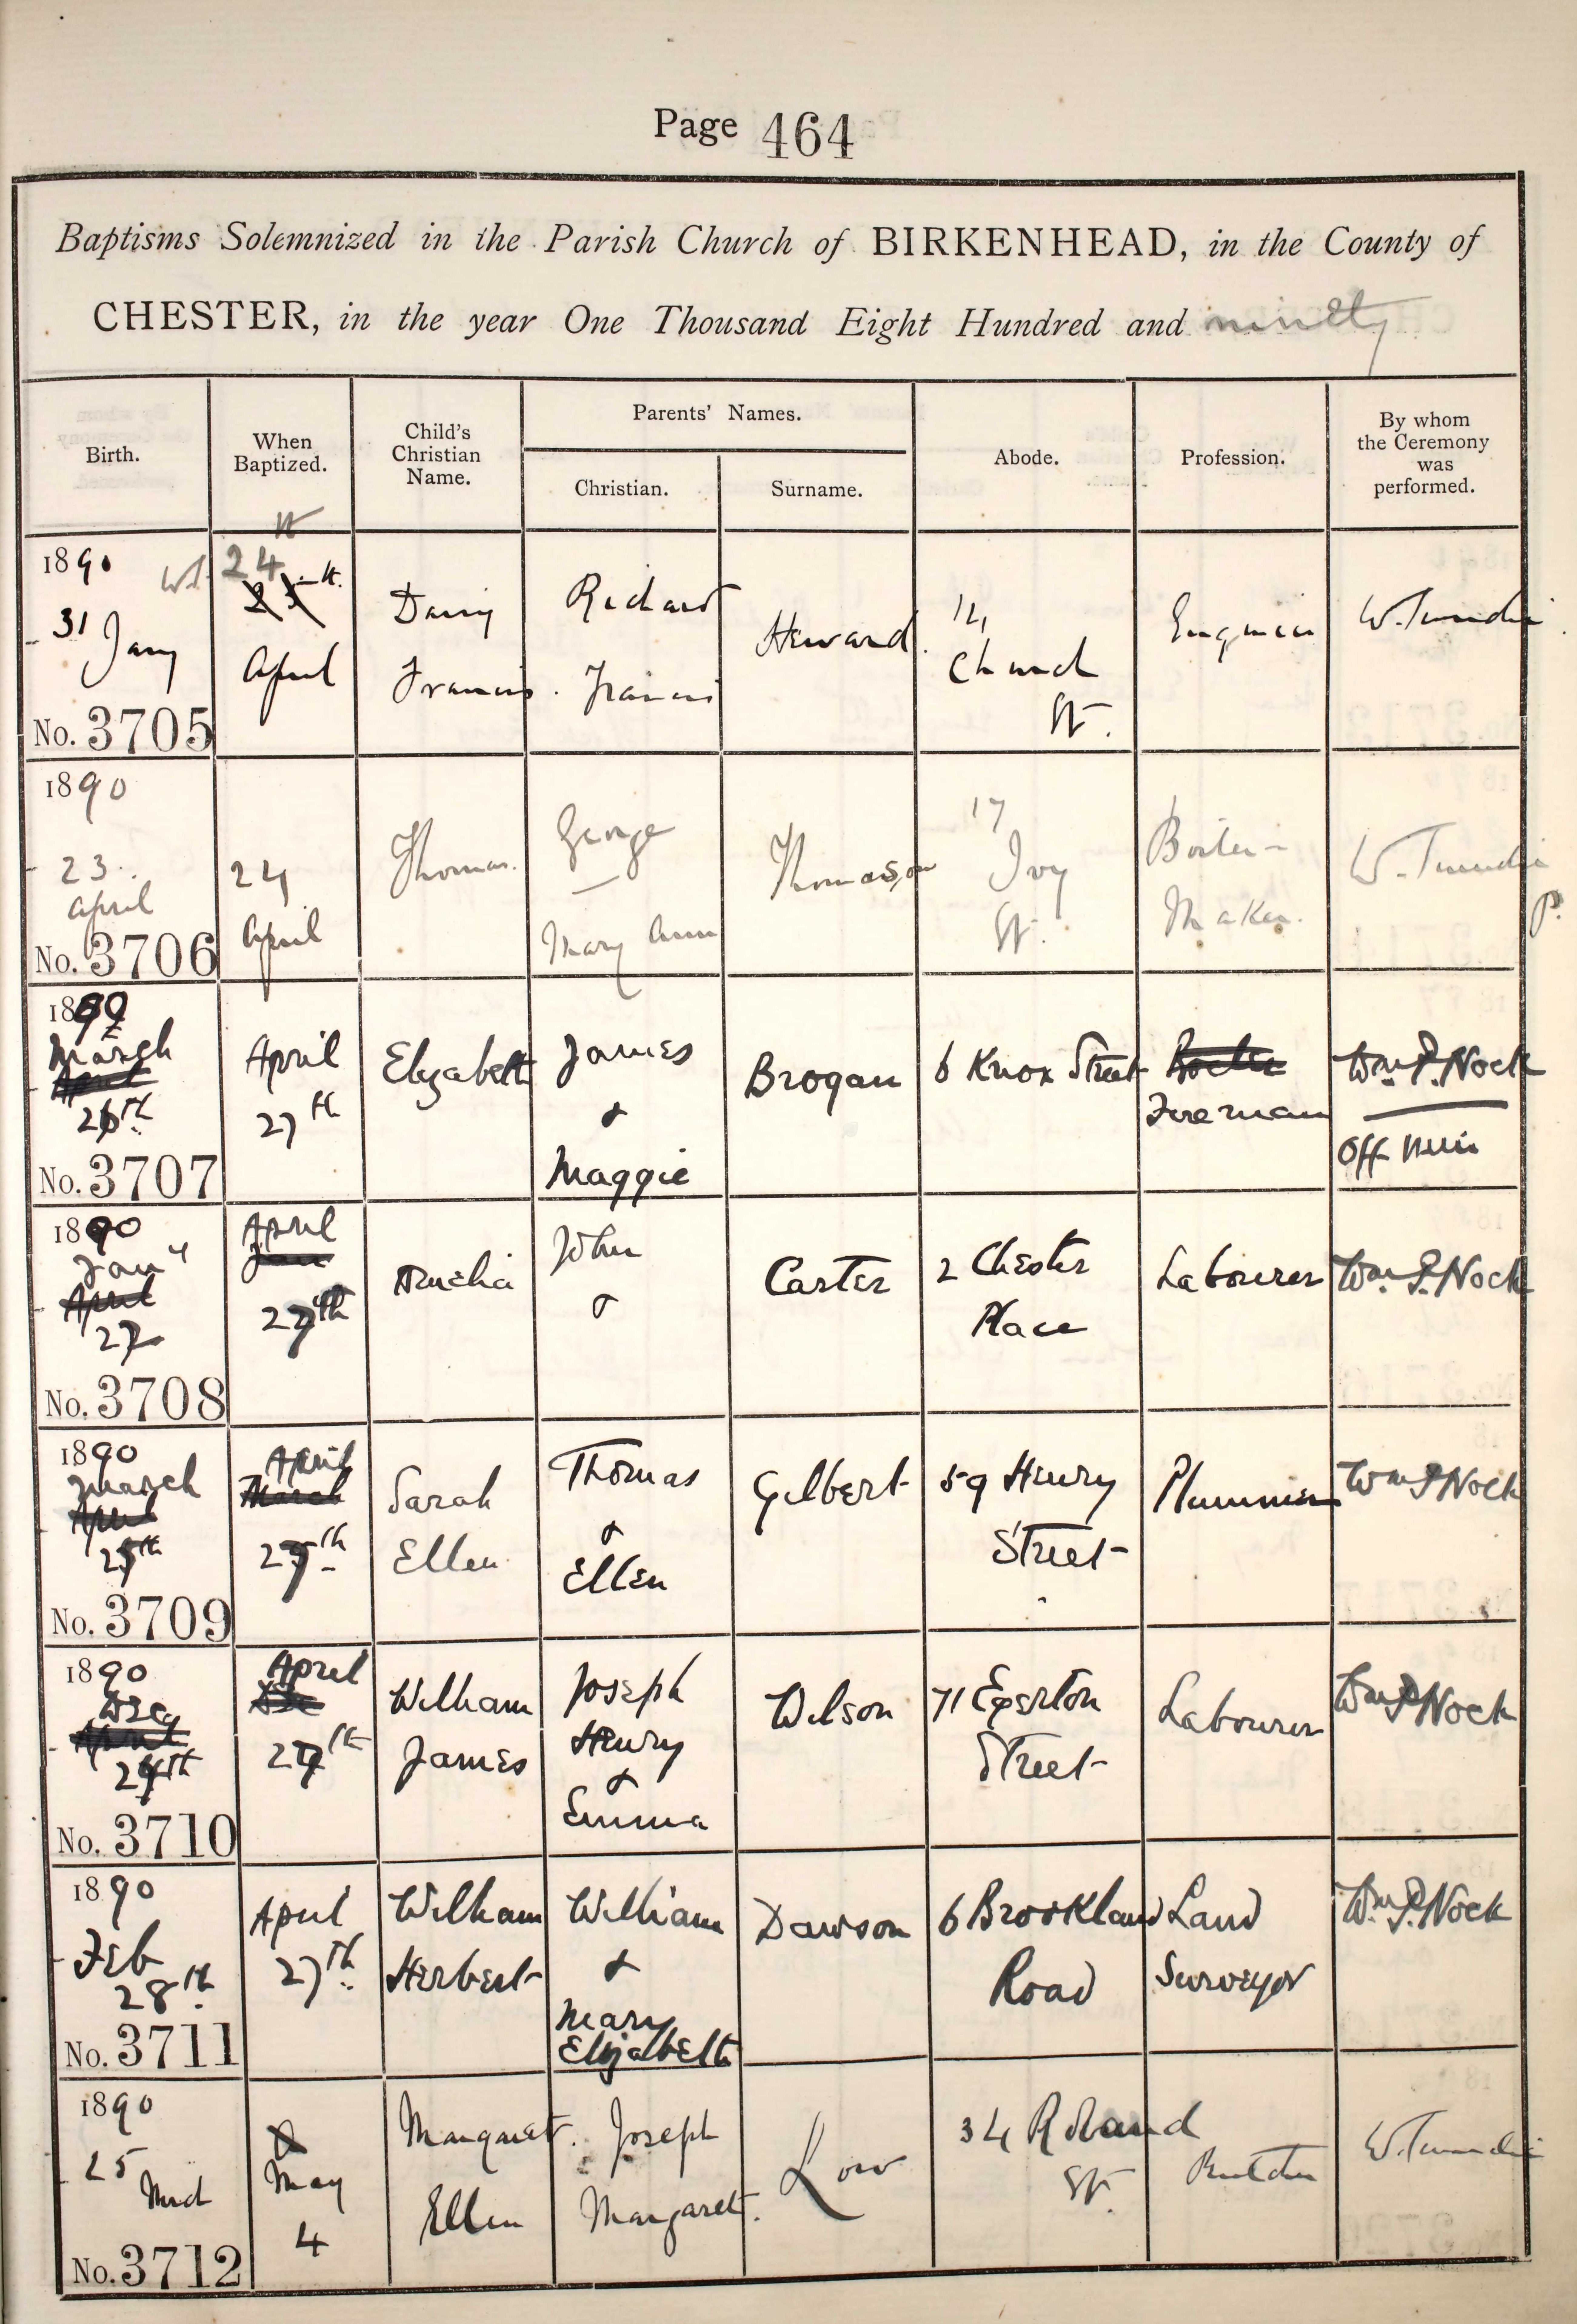 Page 464
Baptisms Solemnized in the Parish Church of BIRKENHEAD, in the County of
CHESTER, in the year One Thousand Eight Hundred and ninety
Birth.
When
Baptized.
Child's
Christian
Name.
Parents' Names.
Christian.
Surname.
Abode.
Profession.
By whom
the Ceremony
was
performed.
1890
31 Jany
No. 3705
24th
April
Daisy
Francis
Richard
Francis
Howard
14
Church
St.
Engineer
1890
23
April
No. 3706
24
April
Thomas
George
Mary Ann
Thomason
17
Ivy
St.
Boiler-
Maker
1890
March
April
26th
No. 3707
April
27th
Elizabeth
James
&
Maggie
Brogan
6 Knox Street
Boiler
Fireman
Wm. P. Nock
Off Min
1890
Jany
April
27
No. 3708
April
Jan
27th
Amelia
John
&
Carter
2 Chester
Place
Labourer
Wm. P. Nock
1890
March
April
25th
No. 3709
April
March
27th
Sarah
Ellen
Thomas
&
Ellen
Gilbert
59 Henry
Street
Plummer
Wm P Nock
1890
Dec
April
29th
No. 3710
April
Dec
27th
William
James
Joseph
Henry
&
Emma
Wilson
71 Egerton
Street
Labourer
Wm P Nock
1890
Feb
28th
No. 3711
April
27th
William
Herbert
William
&
Mary
Elizabeth
Dawson
6 Brookland
Road
Land
Surveyor
Wm. P. Nock
1890
25
No. 3712
May
4
Margaret
Ellen
Joseph
Margaret
Low
34 Roland
St.
Butcher